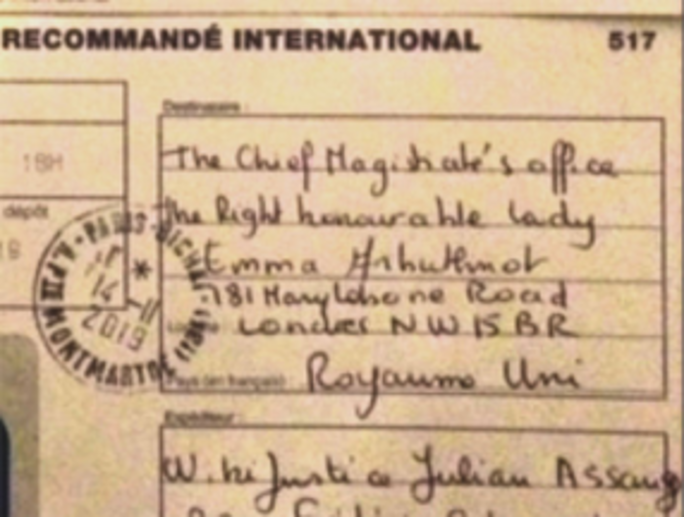 RECOMMANDÉ INTERNATIONAL 517
18H
dépôt
Destinataire :
The Chief Magistrate's office
the Right honourable Lady
Emma Arbuthnot
181 Marylebone Road
Londres NW15BR
Pays (en français) Royaume Uni
PARIS
14-11
2019
MONTMARTRE
Expéditeur :
WikiJustice Julian Assang